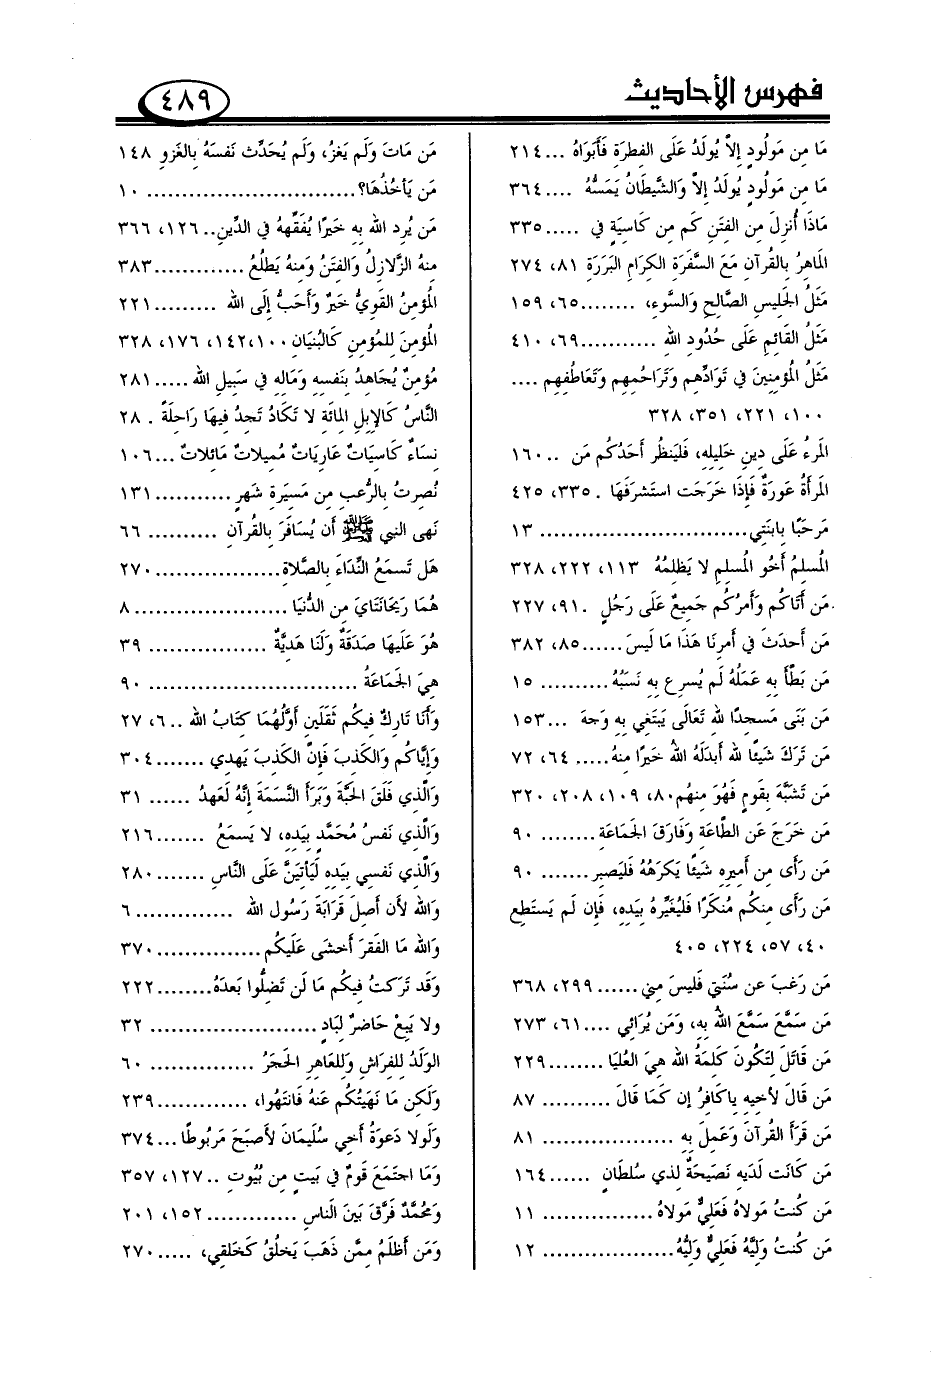 فهرس الأحاديث
٤٨٩
مَا مِن مَولُودٍ إِلاَّ يُولَدُ عَلَى الفِطرَةِ فَأَبَوَاهُ ... ٢١٤
مَا مِن مَولُودٍ يُولَدُ إِلاَّ وَالشَّيطَانُ يَمَسُّهُ .... ٣٦٤
مَاذَا أُنزِلَ مِن الفِتَنِ كَم مِن كَاسِيَةٍ فِي ..... ٣٣٥
الماهِرُ بِالقُرآنِ مَعَ السَّفَرَةِ الكِرَامِ البَرَرَةِ ٨١، ٢٧٤
مَثَلُ الجَلِيسِ الصَّالِحِ وَالسَّوءِ، ........٦٥، ١٥٩
مَثَلُ القَائِمِ عَلَى حُدُودِ الله ...........٦٩، ٤١٠
مَثَلُ المُؤمِنِينَ فِي تَوَادِّهِم وَتَرَاحُمِهِم وَتَعَاطُفِهِم ....
١٠٠، ٢٢١، ٣٥١، ٣٢٨
المَرءُ عَلَى دِينِ خَلِيلِهِ، فَليَنظُر أَحَدُكُم مَن ...١٦٠
المَرأَةُ عَورَةٌ فَإِذَا خَرَجَت استَشرَفَهَا . ٣٣٥، ٤٢٥
مَرحَبًا بِابنَتِي............................ ١٣
المُسلِمُ أَخُو المُسلِمِ لا يَظلِمُهُ ١١٣، ٢٢٢، ٣٢٨
مَن أَتَاكُم وَأَمرُكُم جَمِيعٌ عَلَى رَجُلٍ .٩١، ٢٢٧
مَن أَحدَثَ فِي أَمرِنَا هَذَا مَا لَيسَ......٨٥، ٣٨٢
مَن بَطَّأَ بِهِ عَمَلُهُ لَم يُسرِع بِهِ نَسَبُهُ ......... ١٥
مَن بَنَى مَسجِدًا لله تَعَالَى يَبتَغِي بِهِ وَجهَ ...١٥٣
مَن تَرَكَ شَيئًا لله أَبدَلَهُ اللهُ خَيرًا مِنهُ..... ٦٤، ٧٢
مَن تَشَبَّهَ بِقَومٍ فَهُوَ مِنهُم٨٠، ١٠٩، ٢٠٨، ٣٢٠
مَن خَرَجَ عَن الطَّاعَةِ وَفَارَقَ الجَمَاعَةِ ........ ٩٠
مَن رَأَى مِن أَمِيرِهِ شَيئًا يَكرَهُهُ فَليَصبِر ....... ٩٠
مَن رَأَى مِنكُم مُنكَرًا فَليُغَيِّرهُ بِيَدِهِ، فَإِن لَم يَستَطِع
٤٠، ٥٧، ٢٢٤، ٤٠٥
مَن رَغِبَ عَن سُنَّتِي فَلَيسَ مِنِّي ...... ٢٩٩، ٣٦٨
مَن سَمَّعَ سَمَّعَ اللهُ بِهِ، وَمَن يُرَائِي ....٦١، ٢٧٣
مَن قَاتَلَ لِتَكُونَ كَلِمَةُ الله هِيَ العُليَا ........٢٢٩
مَن قَالَ لأَخِيهِ يَاكَافِرُ إِن كَمَا قَالَ .......... ٨٧
مَن قَرَأَ القُرآنَ وَعَمِلَ بِهِ .................... ٨١
مَن كَانَت لَدَيهِ نَصِيحَةٌ لِذِي سُلطَانٍ ......١٦٤
مَن كُنتُ مَولاهُ فَعَلِيٌّ مَولاهُ................ ١١
مَن كُنتُ وَلِيَّهُ فَعَلِيٌّ وَلِيُّهُ................... ١٢
مَن مَاتَ وَلَم يَغزُ، وَلَم يُحَدِّث نَفسَهُ بِالغَزوِ ١٤٨
مَن يَأخُذُهَا؟............................ ١٠
مَن يُرِد الله بِهِ خَيرًا يُفَقِّههُ فِي الدِّينِ.. ١٢٦، ٣٦٦
مِنهُ الزَّلازِلُ وَالفِتَنُ وَمِنهُ يَطلُعُ .............٣٨٣
المُؤمِنُ القَوِيُّ خَيرٌ وَأَحَبُّ إِلَى الله .........٢٢١
المُؤمِنَ لِلمُؤمِنِ كَالبُنيَانِ١٠٠،١٤٢، ١٧٦، ٣٢٨
مُؤمِنٌ يُجَاهِدُ بِنَفسِهِ وَمَالِهِ فِي سَبِيلِ الله ..... ٢٨١
النَّاسُ كَالإِبِلِ المِائَةِ لا تَكَادُ تَجِدُ فِيهَا رَاحِلَةً . ٢٨
نِسَاءٌ كَاسِيَاتٌ عَارِيَاتٌ مُمِيلاتٌ مَائِلاتٌ ...١٠٦
نُصِرتُ بِالرُّعبِ مِن مَسِيرَةِ شَهرٍ ...........١٣١
نَهَى النبي ﷺ أَن يُسَافَرَ بِالقُرآنِ .......... ٦٦
هَل تَسمَعُ النِّدَاءَ بِالصَّلاةِ.................٢٧٠
هُمَا رَيحَانَتَايَ مِن الدُّنيَا ..................... ٨
هُوَ عَلَيهَا صَدَقَةٌ وَلَنَا هَدِيَّةٌ ................ ٣٩
هِيَ الجَمَاعَةُ ............................. ٩٠
وَأَنَا تَارِكٌ فِيكُم ثَقَلَينِ أَوَّلُهُمَا كِتَابُ الله ..٦، ٢٧
وَإِيَّاكُم وَالكَذِبَ فَإِنَّ الكَذِبَ يَهدِي .......٣٠٤
وَالَّذِي فَلَقَ الحَبَّةَ وَبَرَأَ النَّسَمَةَ إِنَّهُ لَعَهدُ ...... ٣١
وَالَّذِي نَفسُ مُحَمَّدٍ بِيَدِهِ، لا يَسمَعُ .......٢١٦
وَالَّذِي نَفسِي بِيَدِهِ لَيَأتِيَنَّ عَلَى النَّاسِ .......٢٨٠
وَالله لأَن أَصِلَ قَرَابَةَ رَسُولِ الله .............. ٦
وَالله مَا الفَقرَ أَخشَى عَلَيكُم...............٣٧٠
وَقَد تَرَكتُ فِيكُم مَا لَن تَضِلُّوا بَعدَهُ........٢٢٢
وَلا يَبِعْ حَاضِرٌ لِبَادٍ ....................... ٣٢
الوَلَدُ لِلفِرَاشِ وَلِلعَاهِرِ الحَجَرُ ............... ٦٠
وَلَكِن مَا نَهَيتُكُم عَنهُ فَانتَهُوا، .............٢٣٩
وَلَولا دَعوَةُ أَخِي سُلَيمَانَ لأَصبَحَ مَربُوطًا ...٣٧٤
وَمَا اجتَمَعَ قَومٌ فِي بَيتٍ مِن بُيُوتِ ..١٢٧، ٣٥٧
وَمُحَمَّدٌ فَرَّقَ بَينَ النَّاسِ .............١٥٢، ٢٠١
وَمَن أَظلَمُ مِمَّن ذَهَبَ يَخلُقُ كَخَلقِي، .....٢٧٠